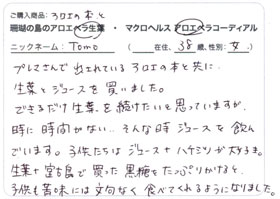 ご購入商品：アロエの本と
珊瑚の島のアロエベラ生葉 ・ マクロヘルス アロエベラコーディアル
ニックネーム：Tomo （ 在住、38歳、性別：女 ）
プレマさんで出されているアロエの本と共に、
生葉とジュースを買いました。
できるだけ生葉を続けたいと思っていますが、
時に時間がない… そんな時ジュースを飲ん
でいます。子供たちはジュース＋ハチミツが大好き。
生葉＋宮古島で買った黒糖をたっぷりかけると、
子供も苦味には文句なく食べてくれるようになりました。